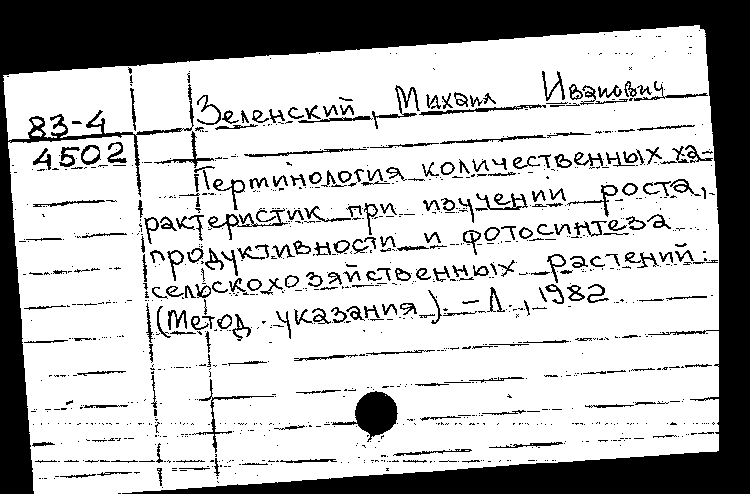 83-4
4502
Зеленский, Михаил Иванович
Терминология количественных ха-
рактеристик при изучении роста,
продуктивности и фотосинтеза
сельскохозяйственных растений:
(Метод. указания). - Л., 1982.